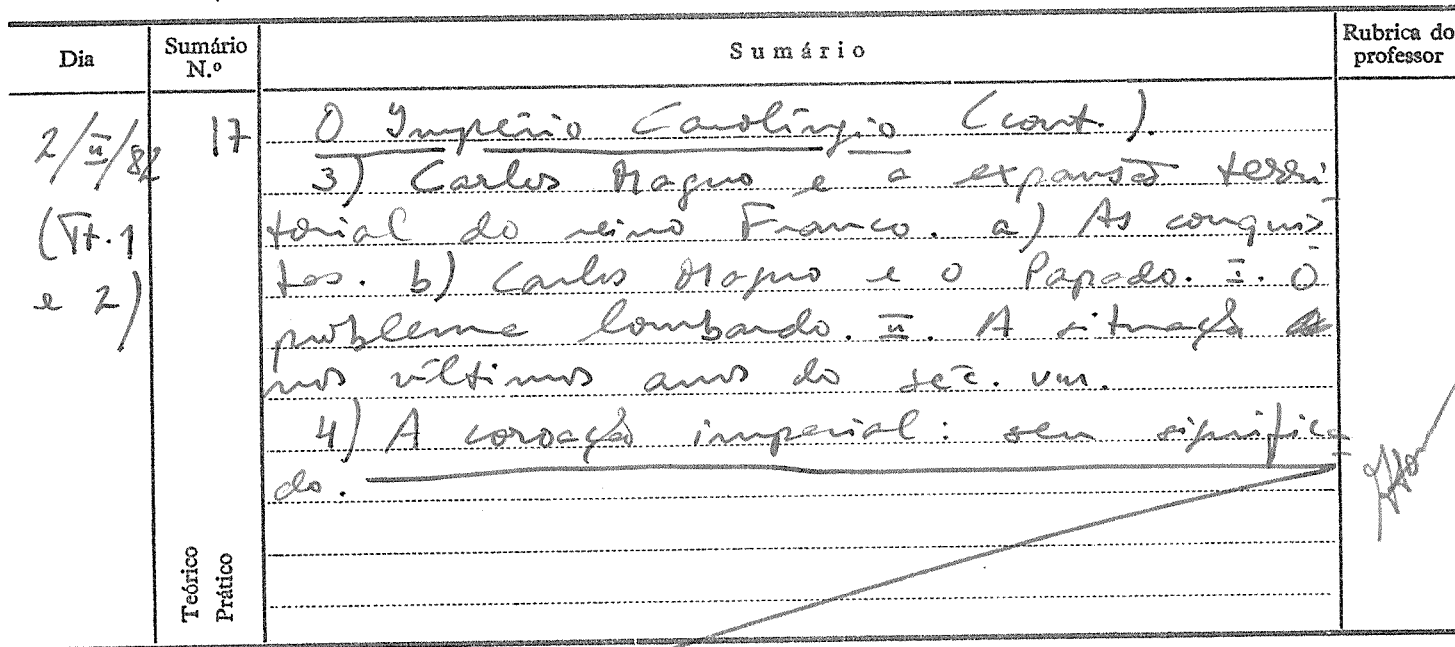 Dia Sumário N.º Sumário Rubrica do professor
2/II/82 17 O Império Carolíngio (cont.).
3) Carlos Magno e a expansão terri
(Tt. 1 torial do reino Franco. a) As conquis
e 2) tas. b) Carlos Magno e o Papado. I. O
problema lombardo. II. A situação
nos últimos anos do séc. VIII.
4) A coroação imperial: seu significa
do.
Teórico
Prático